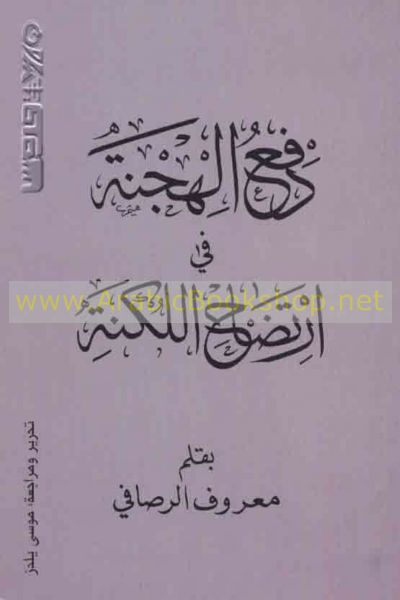 دفع الهجنة
في
ارتضاخ اللكنة
www.ArabicBookshop.net
بقلم
معروف الرصافي
تحرير ومراجعة: موسى يلدز